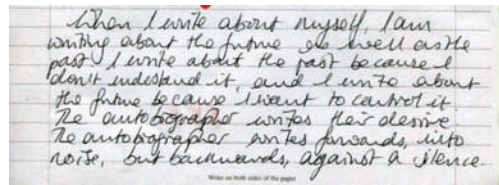 When I write about myself, I am
writing about the future as well as the
past. I write about the past because I
don't understand it, and I write about
the future because I want to control it.
The autobiographer writes their desire.
The autobiographer writes forwards, into
noise, but backwards, against a silence.
Write on both sides of the paper